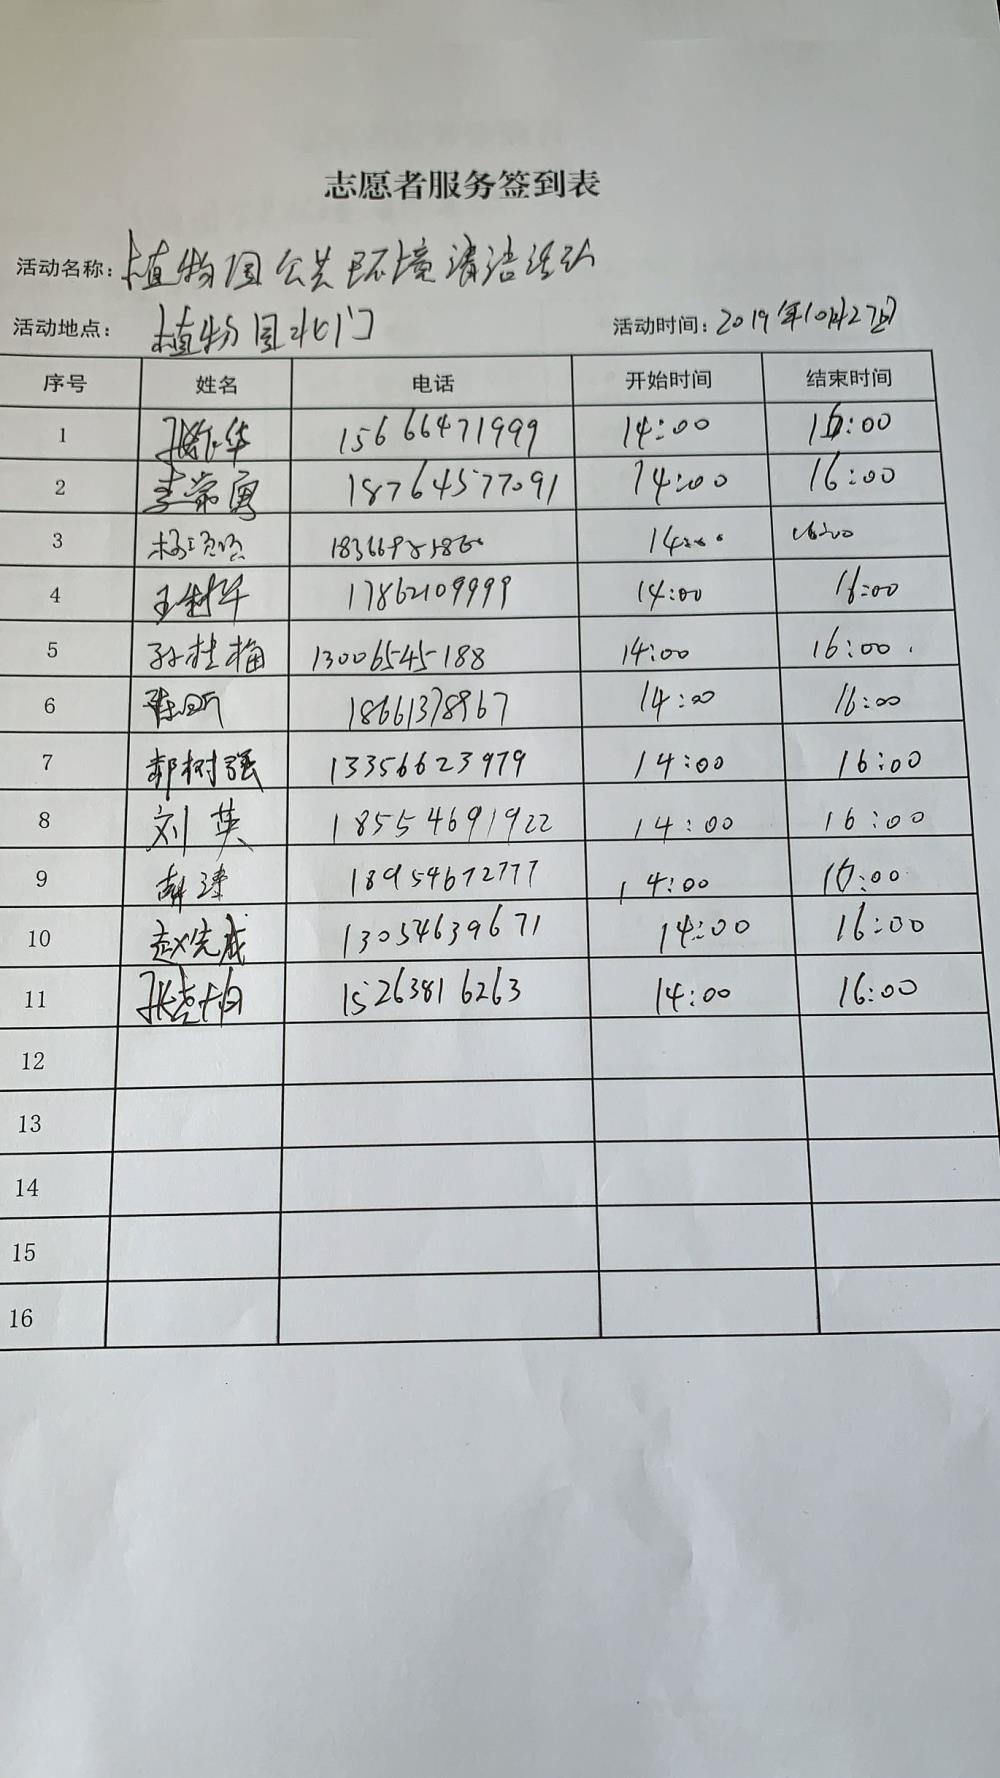 志愿者服务签到表
活动名称：植物园公共环境清洁活动
活动地点：植物园北门 活动时间：2019年10月27日
序号 姓名 电话 开始时间 结束时间
1 华 15666471999 14:00 16:00
2 李常勇 18764577091 14:00 16:00
3 14:00 16:00
4 王树军 17862109999 14:00 16:00
5 孙桂梅 13006545188 14:00 16:00
6 18661378967 14:00 16:00
7 郝树强 13356623979 14:00 16:00
8 刘英 18554691922 14:00 16:00
9 18954672777 14:00 16:00
10 赵先成 13054639671 14:00 16:00
11 15263816263 14:00 16:00
12
13
14
15
16